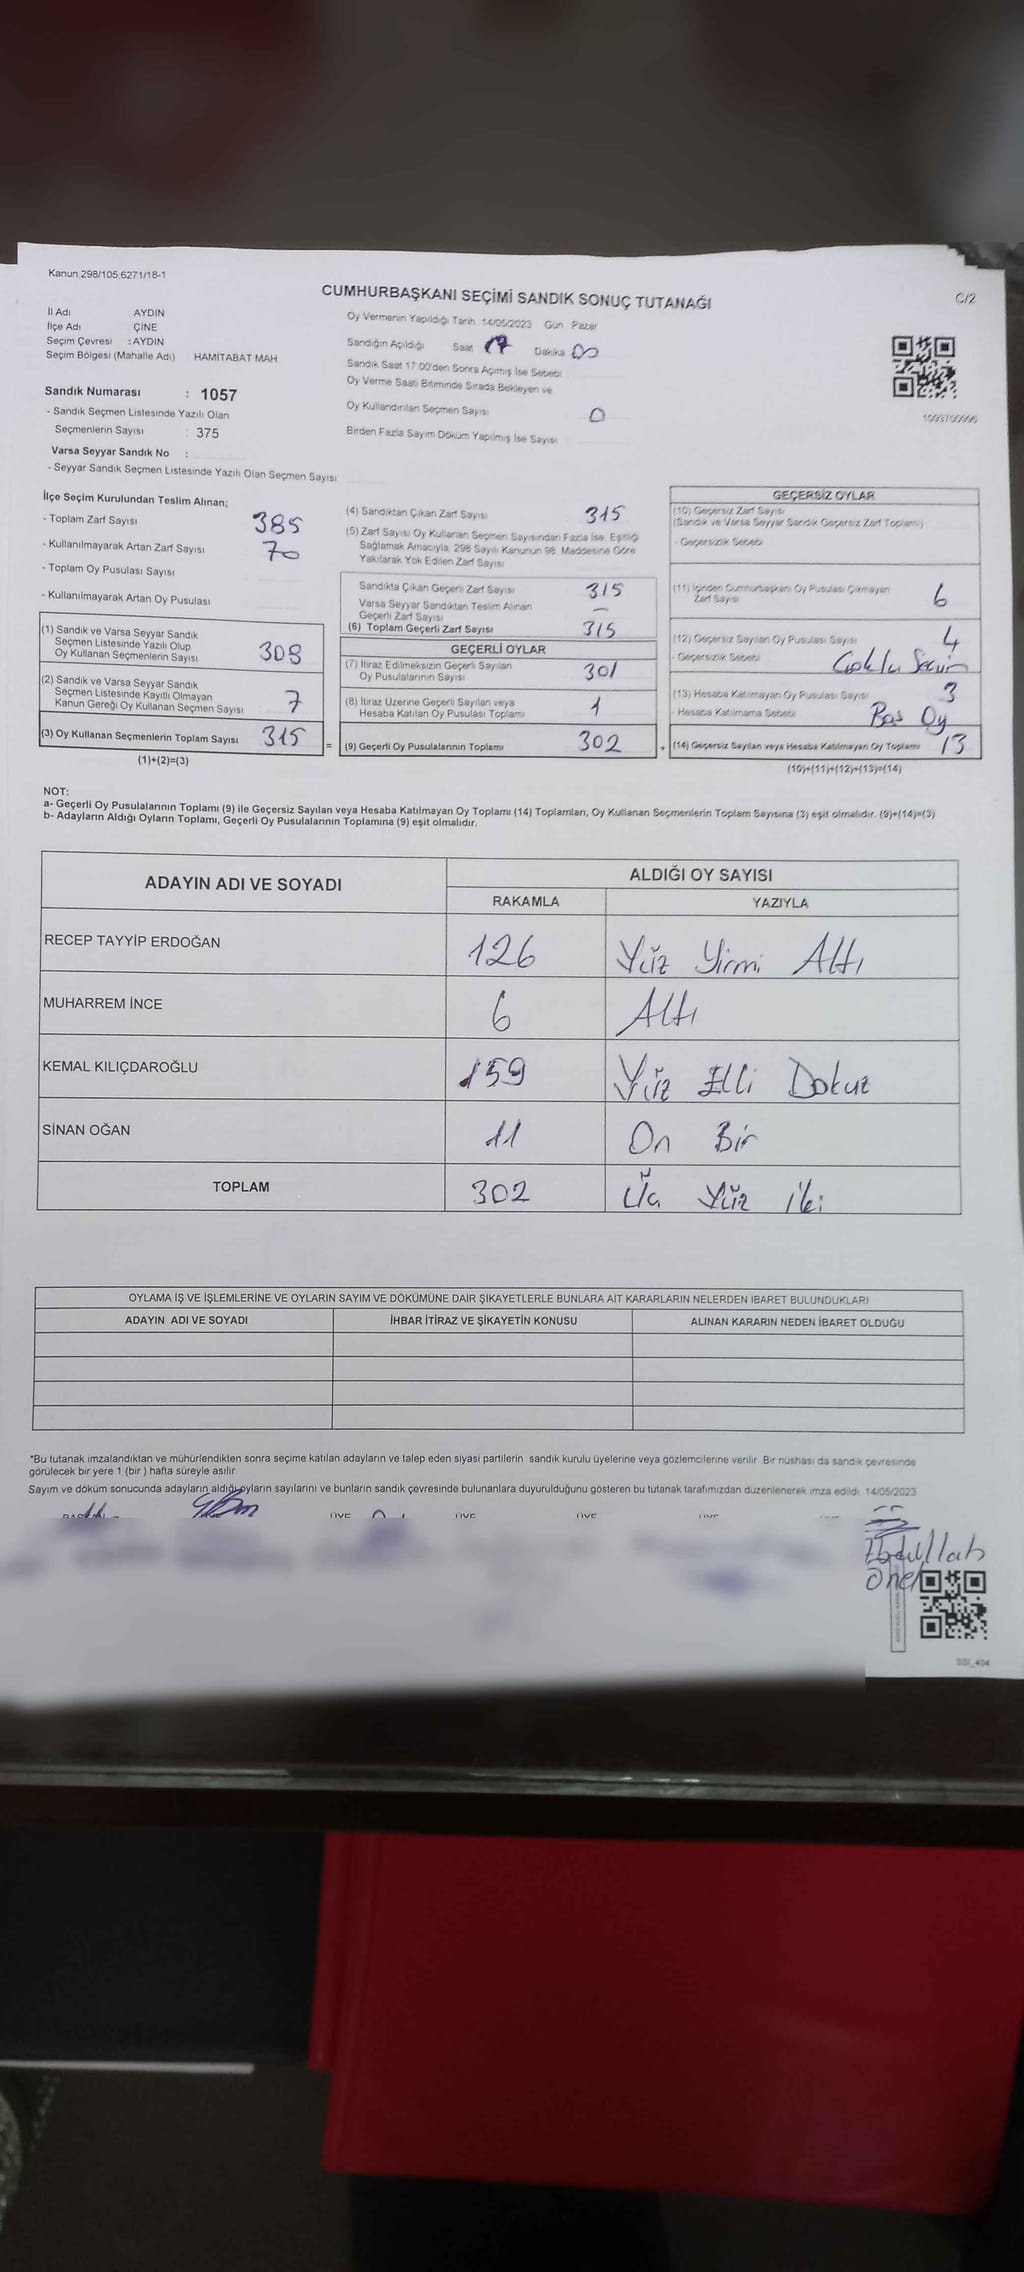 Kanun 298/105,6271/18-1
CUMHURBAŞKANI SEÇİMİ SANDIK SONUÇ TUTANAĞI
C/2
İl Adı AYDIN
İlçe Adı ÇİNE
Seçim Çevresi : AYDIN
Seçim Bölgesi (Mahalle Adı) HAMİTABAT MAH
Sandık Numarası : 1057
- Sandık Seçmen Listesinde Yazılı Olan
Seçmenlerin Sayısı : 375
Varsa Seyyar Sandık No :
- Seyyar Sandık Seçmen Listesinde Yazılı Olan Seçmen Sayısı
Oy Vermenin Yapıldığı Tarih 14/05/2023 Gün Pazar
Sandığın Açıldığı Saat 17 Dakika 00
Sandık Saat 17:00'den Sonra Açımış İse Sebebi
Oy Verme Saati Bitiminde Sırada Bekleyen ve
Oy Kullandırılan Seçmen Sayısı 0
Birden Fazla Sayım Döküm Yapılmış İse Sayısı
İlçe Seçim Kurulundan Teslim Alınan;
- Toplam Zarf Sayısı 385
- Kullanılmayarak Artan Zarf Sayısı 70
- Toplam Oy Pusulası Sayısı
- Kullanılmayarak Artan Oy Pusulası
(1) Sandık ve Varsa Seyyar Sandık
Seçmen Listesinde Yazılı Olup
Oy Kullanan Seçmenlerin Sayısı 308
(2) Sandık ve Varsa Seyyar Sandık
Seçmen Listesinde Kayıtlı Olmayan
Kanun Gereği Oy Kullanan Seçmen Sayısı 7
(3) Oy Kullanan Seçmenlerin Toplam Sayısı 315
(1)+(2)=(3)
=
(4) Sandıktan Çıkan Zarf Sayısı 315
(5) Zarf Sayısı Oy Kullanan Seçmen Sayısından Fazla İse, Eşitliği
Sağlamak Amacıyla, 298 Sayılı Kanunun 98. Maddesine Göre
Yakılarak Yok Edilen Zarf Sayısı
Sandıkta Çıkan Geçerli Zarf Sayısı 315
Varsa Seyyar Sandıktan Teslim Alınan
Geçerli Zarf Sayısı –
(6) Toplam Geçerli Zarf Sayısı 315
GEÇERLİ OYLAR
(7) İtiraz Edilmeksizin Geçerli Sayılan
Oy Pusulalarının Sayısı 301
(8) İtiraz Üzerine Geçerli Sayılan veya
Hesaba Katılan Oy Pusulası Toplamı 1
(9) Geçerli Oy Pusulalarının Toplamı 302
+
GEÇERSİZ OYLAR
(10) Geçersiz Zarf Sayısı
(Sandık ve Varsa Seyyar Sandık Geçersiz Zarf Toplamı)
- Geçersizlik Sebebi
(11) İçinden Cumhurbaşkanı Oy Pusulası Çıkmayan
Zarf Sayısı 6
(12) Geçersiz Sayılan Oy Pusulası Sayısı 4
- Geçersizlik Sebebi Çoklu Seçim
(13) Hesaba Katılmayan Oy Pusulası Sayısı 3
- Hesaba Katılmama Sebebi Boş Oy
(14) Geçersiz Sayılan veya Hesaba Katılmayan Oy Toplamı 13
(10)+(11)+(12)+(13)=(14)
NOT:
a- Geçerli Oy Pusulalarının Toplamı (9) ile Geçersiz Sayılan veya Hesaba Katılmayan Oy Toplamı (14) Toplamları, Oy Kullanan Seçmenlerin Toplam Sayısına (3) eşit olmalıdır. (9)+(14)=(3)
b- Adayların Aldığı Oyların Toplamı, Geçerli Oy Pusulalarının Toplamına (9) eşit olmalıdır.
ADAYIN ADI VE SOYADI ALDIĞI OY SAYISI
RAKAMLA YAZIYLA
RECEP TAYYİP ERDOĞAN 126 Yüz Yirmi Altı
MUHARREM İNCE 6 Altı
KEMAL KILIÇDAROĞLU 159 Yüz Elli Dokuz
SİNAN OĞAN 11 On Bir
TOPLAM 302 Üç Yüz İki
OYLAMA İŞ VE İŞLEMLERİNE VE OYLARIN SAYIM VE DÖKÜMÜNE DAİR ŞİKAYETLERLE BUNLARA AİT KARARLARIN NELERDEN İBARET BULUNDUKLARI
ADAYIN ADI VE SOYADI İHBAR İTİRAZ VE ŞİKAYETİN KONUSU ALINAN KARARIN NEDEN İBARET OLDUĞU
*Bu tutanak imzalandıktan ve mühürlendikten sonra seçime katılan adayların ve talep eden siyasi partilerin sandık kurulu üyelerine veya gözlemcilerine verilir Bir nüshası da sandık çevresinde
görülecek bir yere 1 (bir ) hafta süreyle asılır
Sayım ve döküm sonucunda adayların aldığı oyların sayılarını ve bunların sandık çevresinde bulunanlara duyurulduğunu gösteren bu tutanak tarafımızdan düzenlenerek imza edildi 14/05/2023
Abdullah
Önel
SSI_404